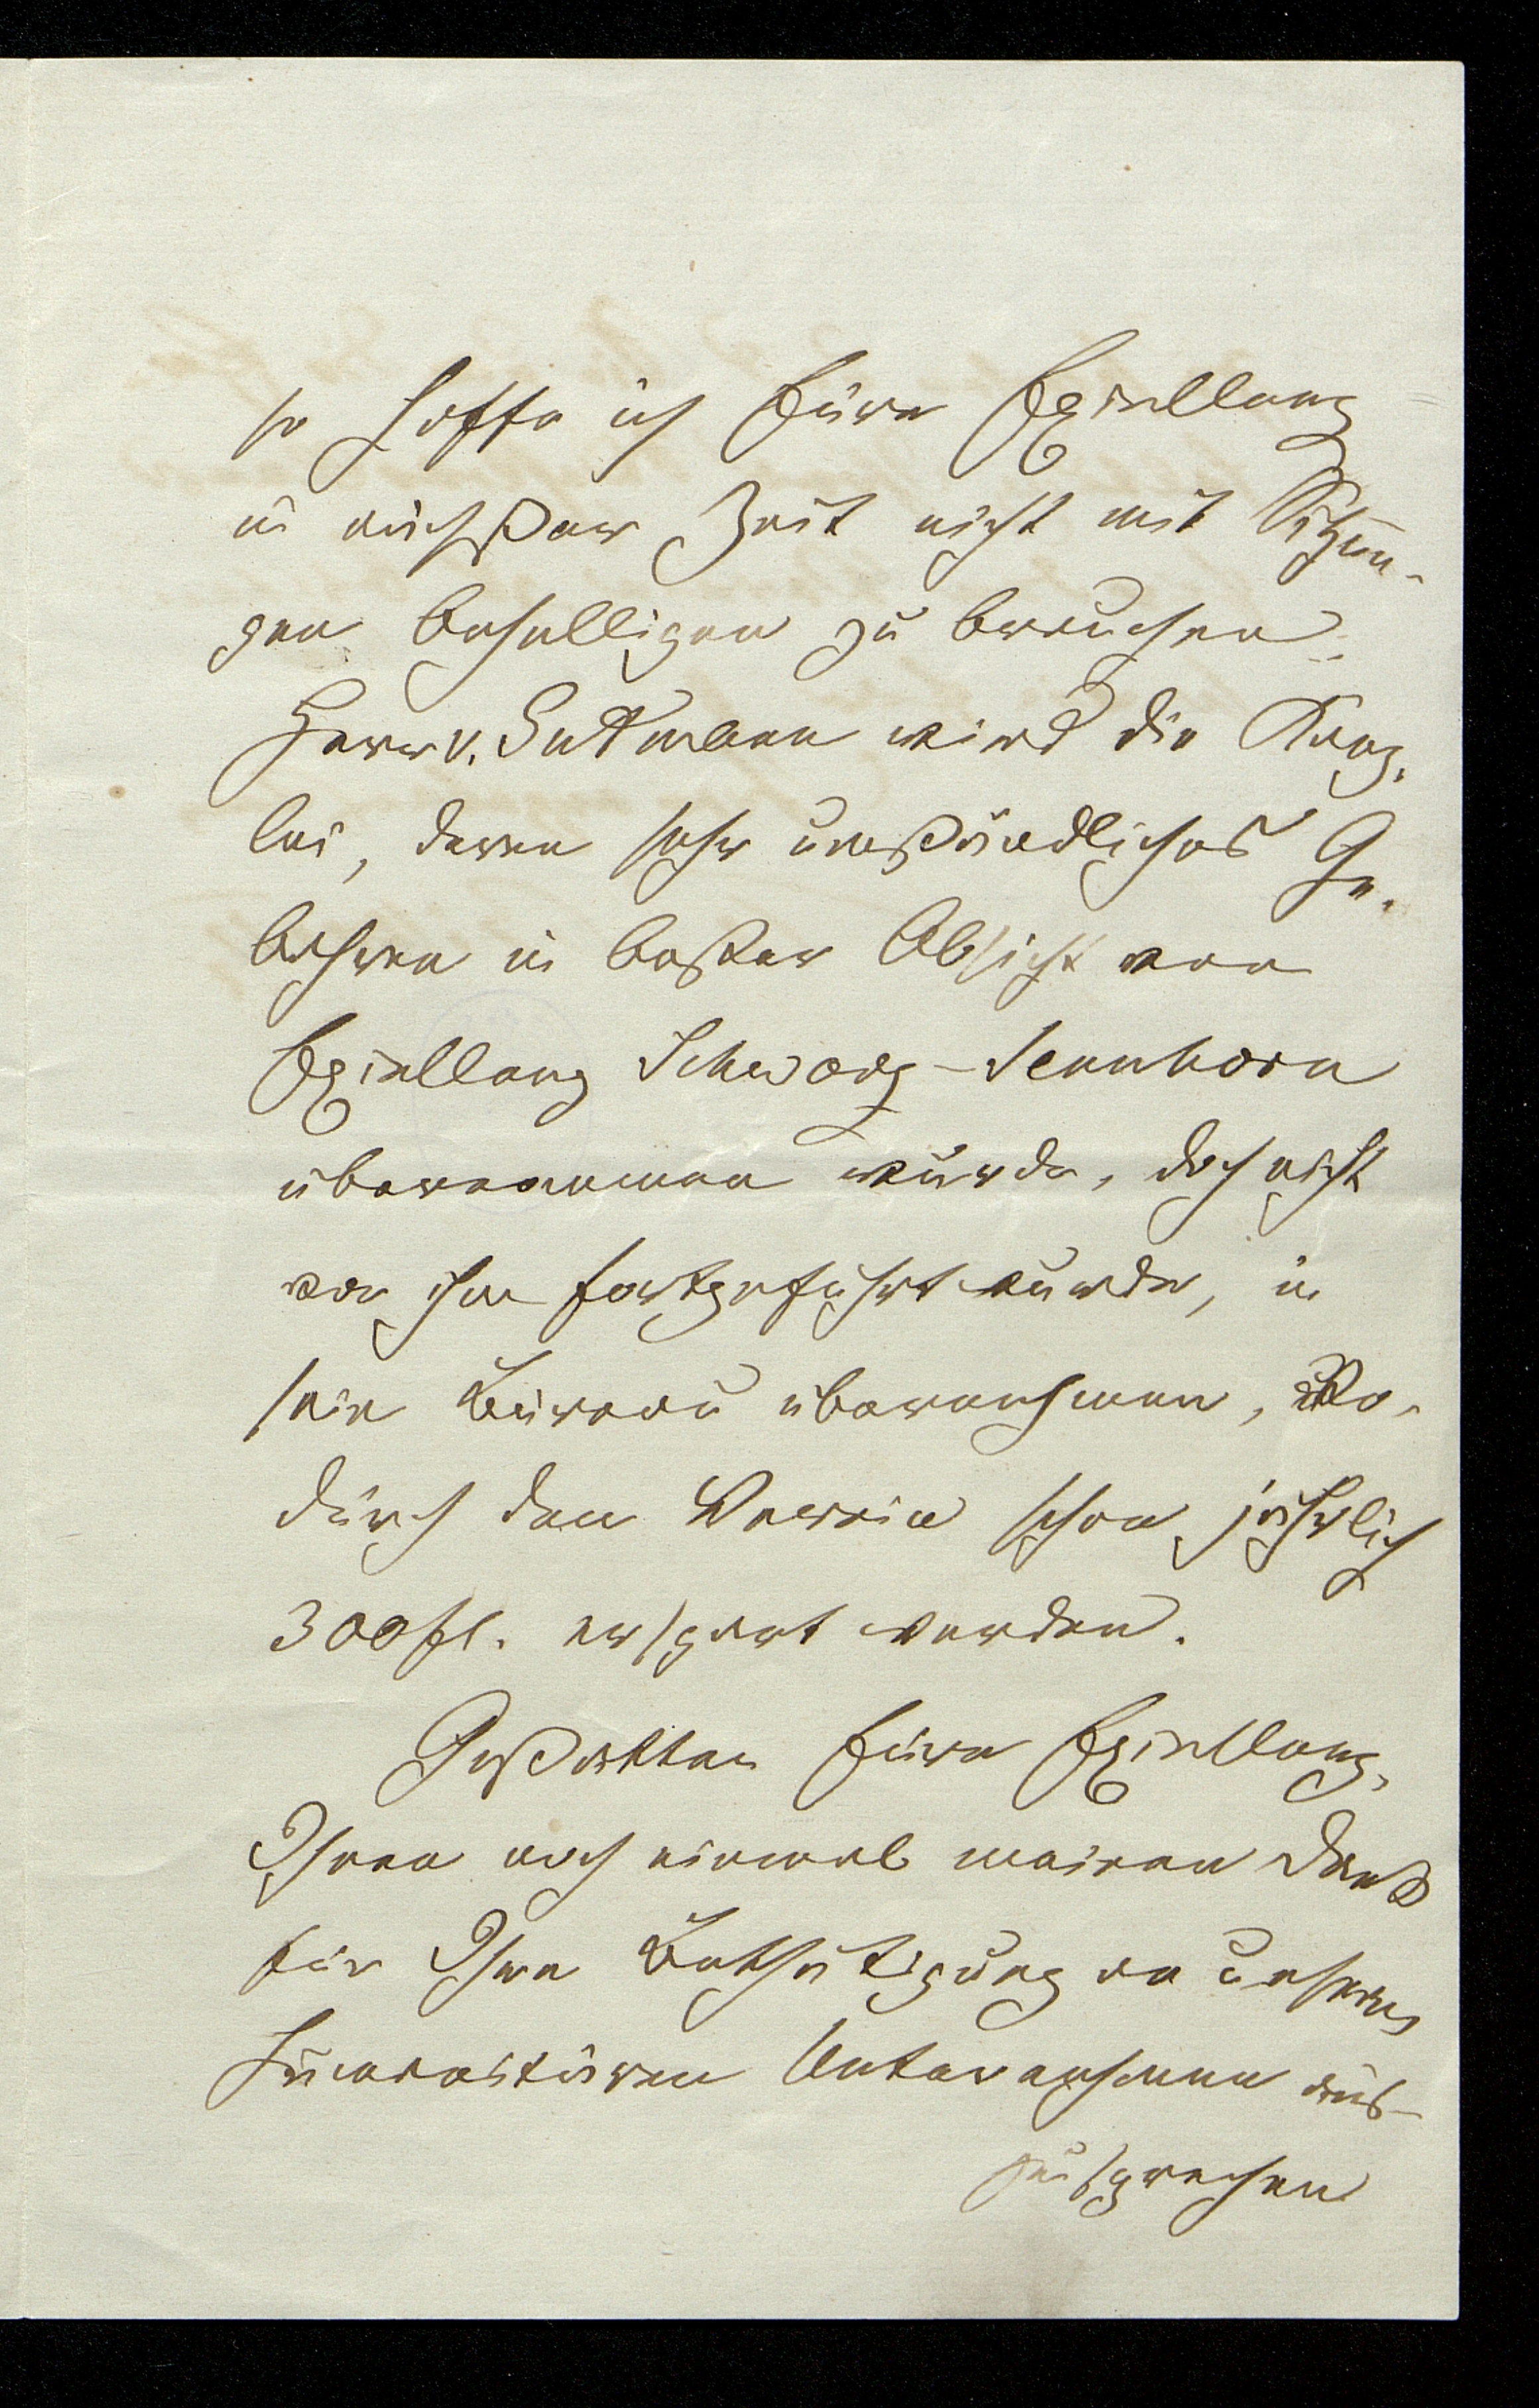 so hoffe ich Eure Exzellenz
in nächster Zeit nicht mit Sitzun-
gen behelligen zu brauchen.
Herr v. Guttmann wird die Kanz-
lei, deren sehr umständliches Ge-
bahren in bester Absicht von
Exzellenz Schwarz-Sennborn
übernommen wurde, doch nicht
von ihm fortgeführt wurde, in
sein Büreau übernehmen, wo-
durch dem Verein schon jährlich
300 fl. erspart werden.
Gestatten Eure Exzellenz,
Ihnen noch einmal meinen Dank
für Ihre Bethätigung an unserm
humanitären Unternehmen aus-
zusprechen